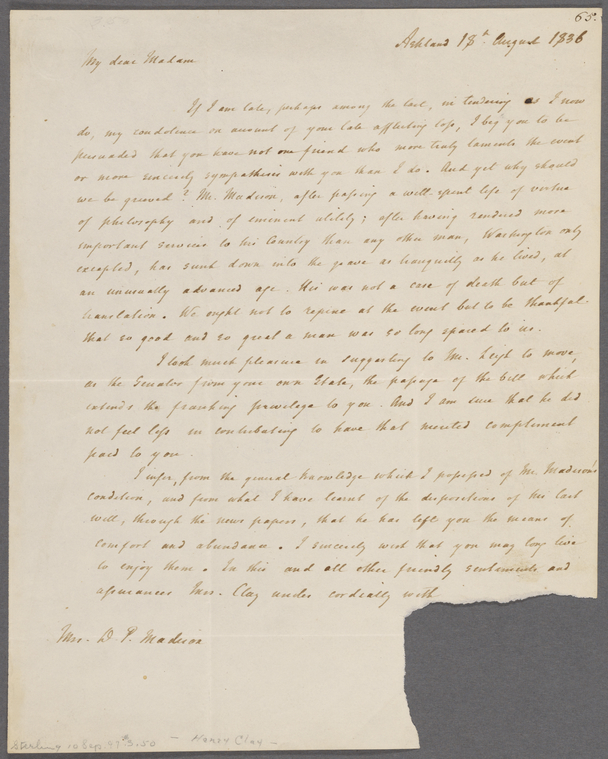 65.
Ashland 18th August 1836
My dear Madam
If I am late, perhaps among the last, in tendering as I now
do, my condolence on account of your late afflicting loss, I beg you to be
persuaded that you have not one friend who more truly laments the event
or more sincerely sympathises with you than I do. And yet why should
we be grieved? Mr. Madison, after passing a well-spent life of virtue
of philosophy and of eminent utility; after having rendered more
important service to his Country than any other man, Washington only
excepted, has sunk down into the grave as tranquilly as he lived, at
an unusually advanced age. His was not a case of death but of
translation. We ought not to repine at the event but to be thankful
that so good and so great a man was so long spared to us.
I took much pleasure in suggesting to Mr. Leigh to move,
as the Senator from your own State, the passage of the bill which
extends the franking privilege to you. And I am sure that he did
not feel less in contributing to have that merited compliment
paid to you.
I infer, from the general knowledge which I possessed of Mr. Madison's
condition, and from what I have learnt of the dispositions of his last
will, through the news papers, that he has left you the means of
comfort and abundance. I sincerely wish that you may long live
to enjoy them. In this and all other friendly sentiments and
assurances Mrs. Clay unites cordially with
Mrs. D. P. Madison
Sterling 10 Sep 47 $3.50 - Henry Clay -